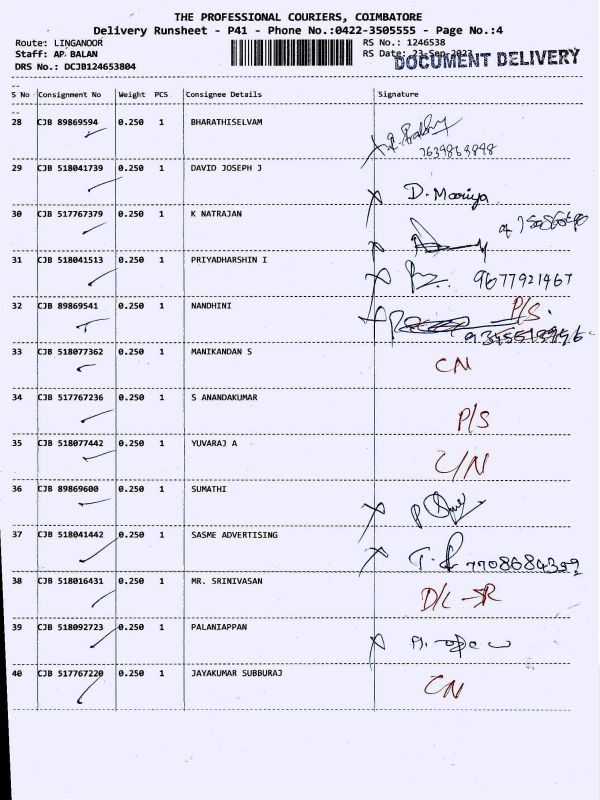 THE PROFESSIONAL COURIERS, COIMBATORE
Delivery Runsheet - P41 - Phone No.:0422-3505555 - Page No.:4
Route: LINGANOOR
RS No.: 1246538
Staff: AP BALAN
RS Date: 23-Sep-2023
DOCUMENT DELIVERY
DRS No.: DCJB124653804
S No Consignment No Weight PCS Consignee Details Signature
28 CJB 89869594 0.250 1 BHARATHISELVAM
29 CJB 518041739 0.250 1 DAVID JOSEPH J D. Mooriya
30 CJB 517767379 0.250 1 K NATRAJAN
31 CJB 518041513 0.250 1 PRIYADHARSHIN I 9677921467
32 CJB 89869541 0.250 1 NANDHINI P/S.
33 CJB 518077362 0.250 1 MANIKANDAN S CN
34 CJB 517767236 0.250 1 S ANANDAKUMAR P/S
35 CJB 518077442 0.250 1 YUVARAJ A C/N
36 CJB 89869600 0.250 1 SUMATHI
37 CJB 518041442 0.250 1 SASME ADVERTISING 7708684352
38 CJB 518016431 0.250 1 MR. SRINIVASAN D/L
39 CJB 518092723 0.250 1 PALANIAPPAN
40 CJB 517767220 0.250 1 JAYAKUMAR SUBBURAJ CN